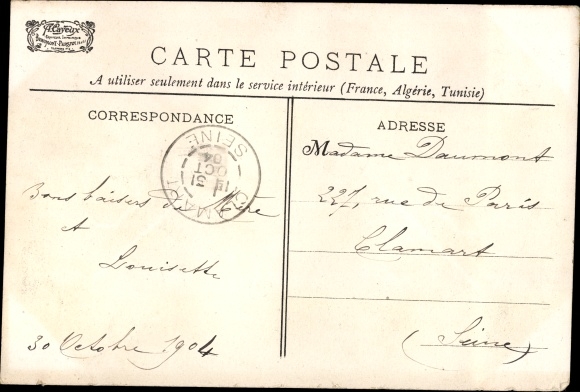 A. Cayeux
CARTE POSTALE
A utiliser seulement dans le service intérieur (France, Algérie, Tunisie)
CORRESPONDANCE
Bons baisers de Mère
et
Louisette
30 Octobre 1904
CLAMART
31
OCT
04
SEINE
ADRESSE
Madame Daumont
227, rue de Paris
Clamart
(Seine)